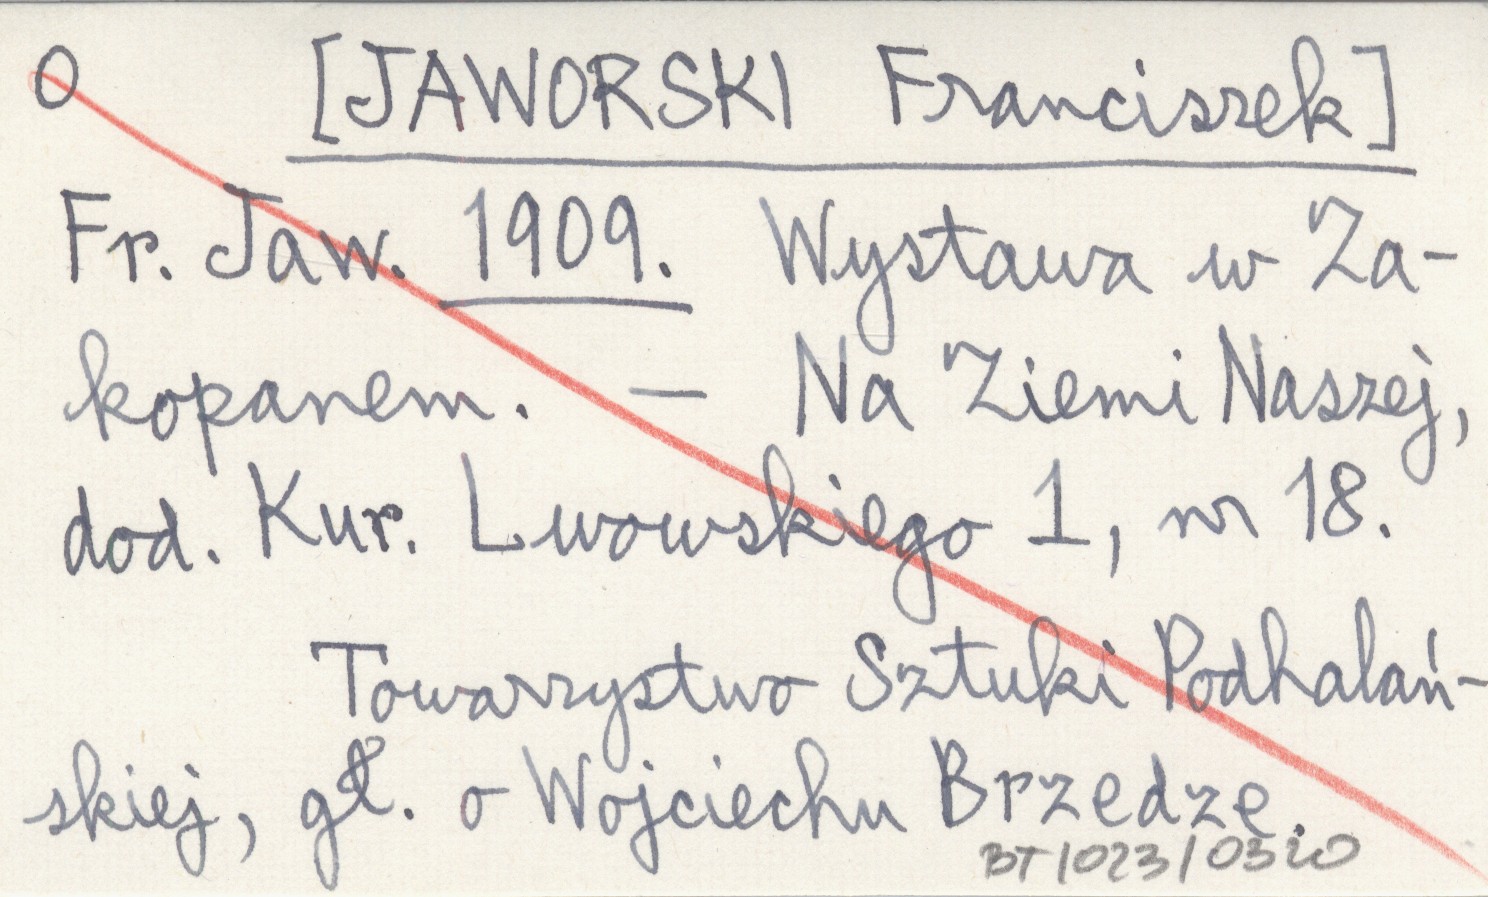 O [JAWORSKI Franciszek]
Fr. Jaw. 1909. Wystawa w Za-
kopanem. — Na Ziemi Naszej,
dod. Kur. Lwowskiego 1, nr 18.
Towarzystwo Sztuki Podhalań-
skiej, gł. o Wojciechu Brzedze.
BT/023/0320